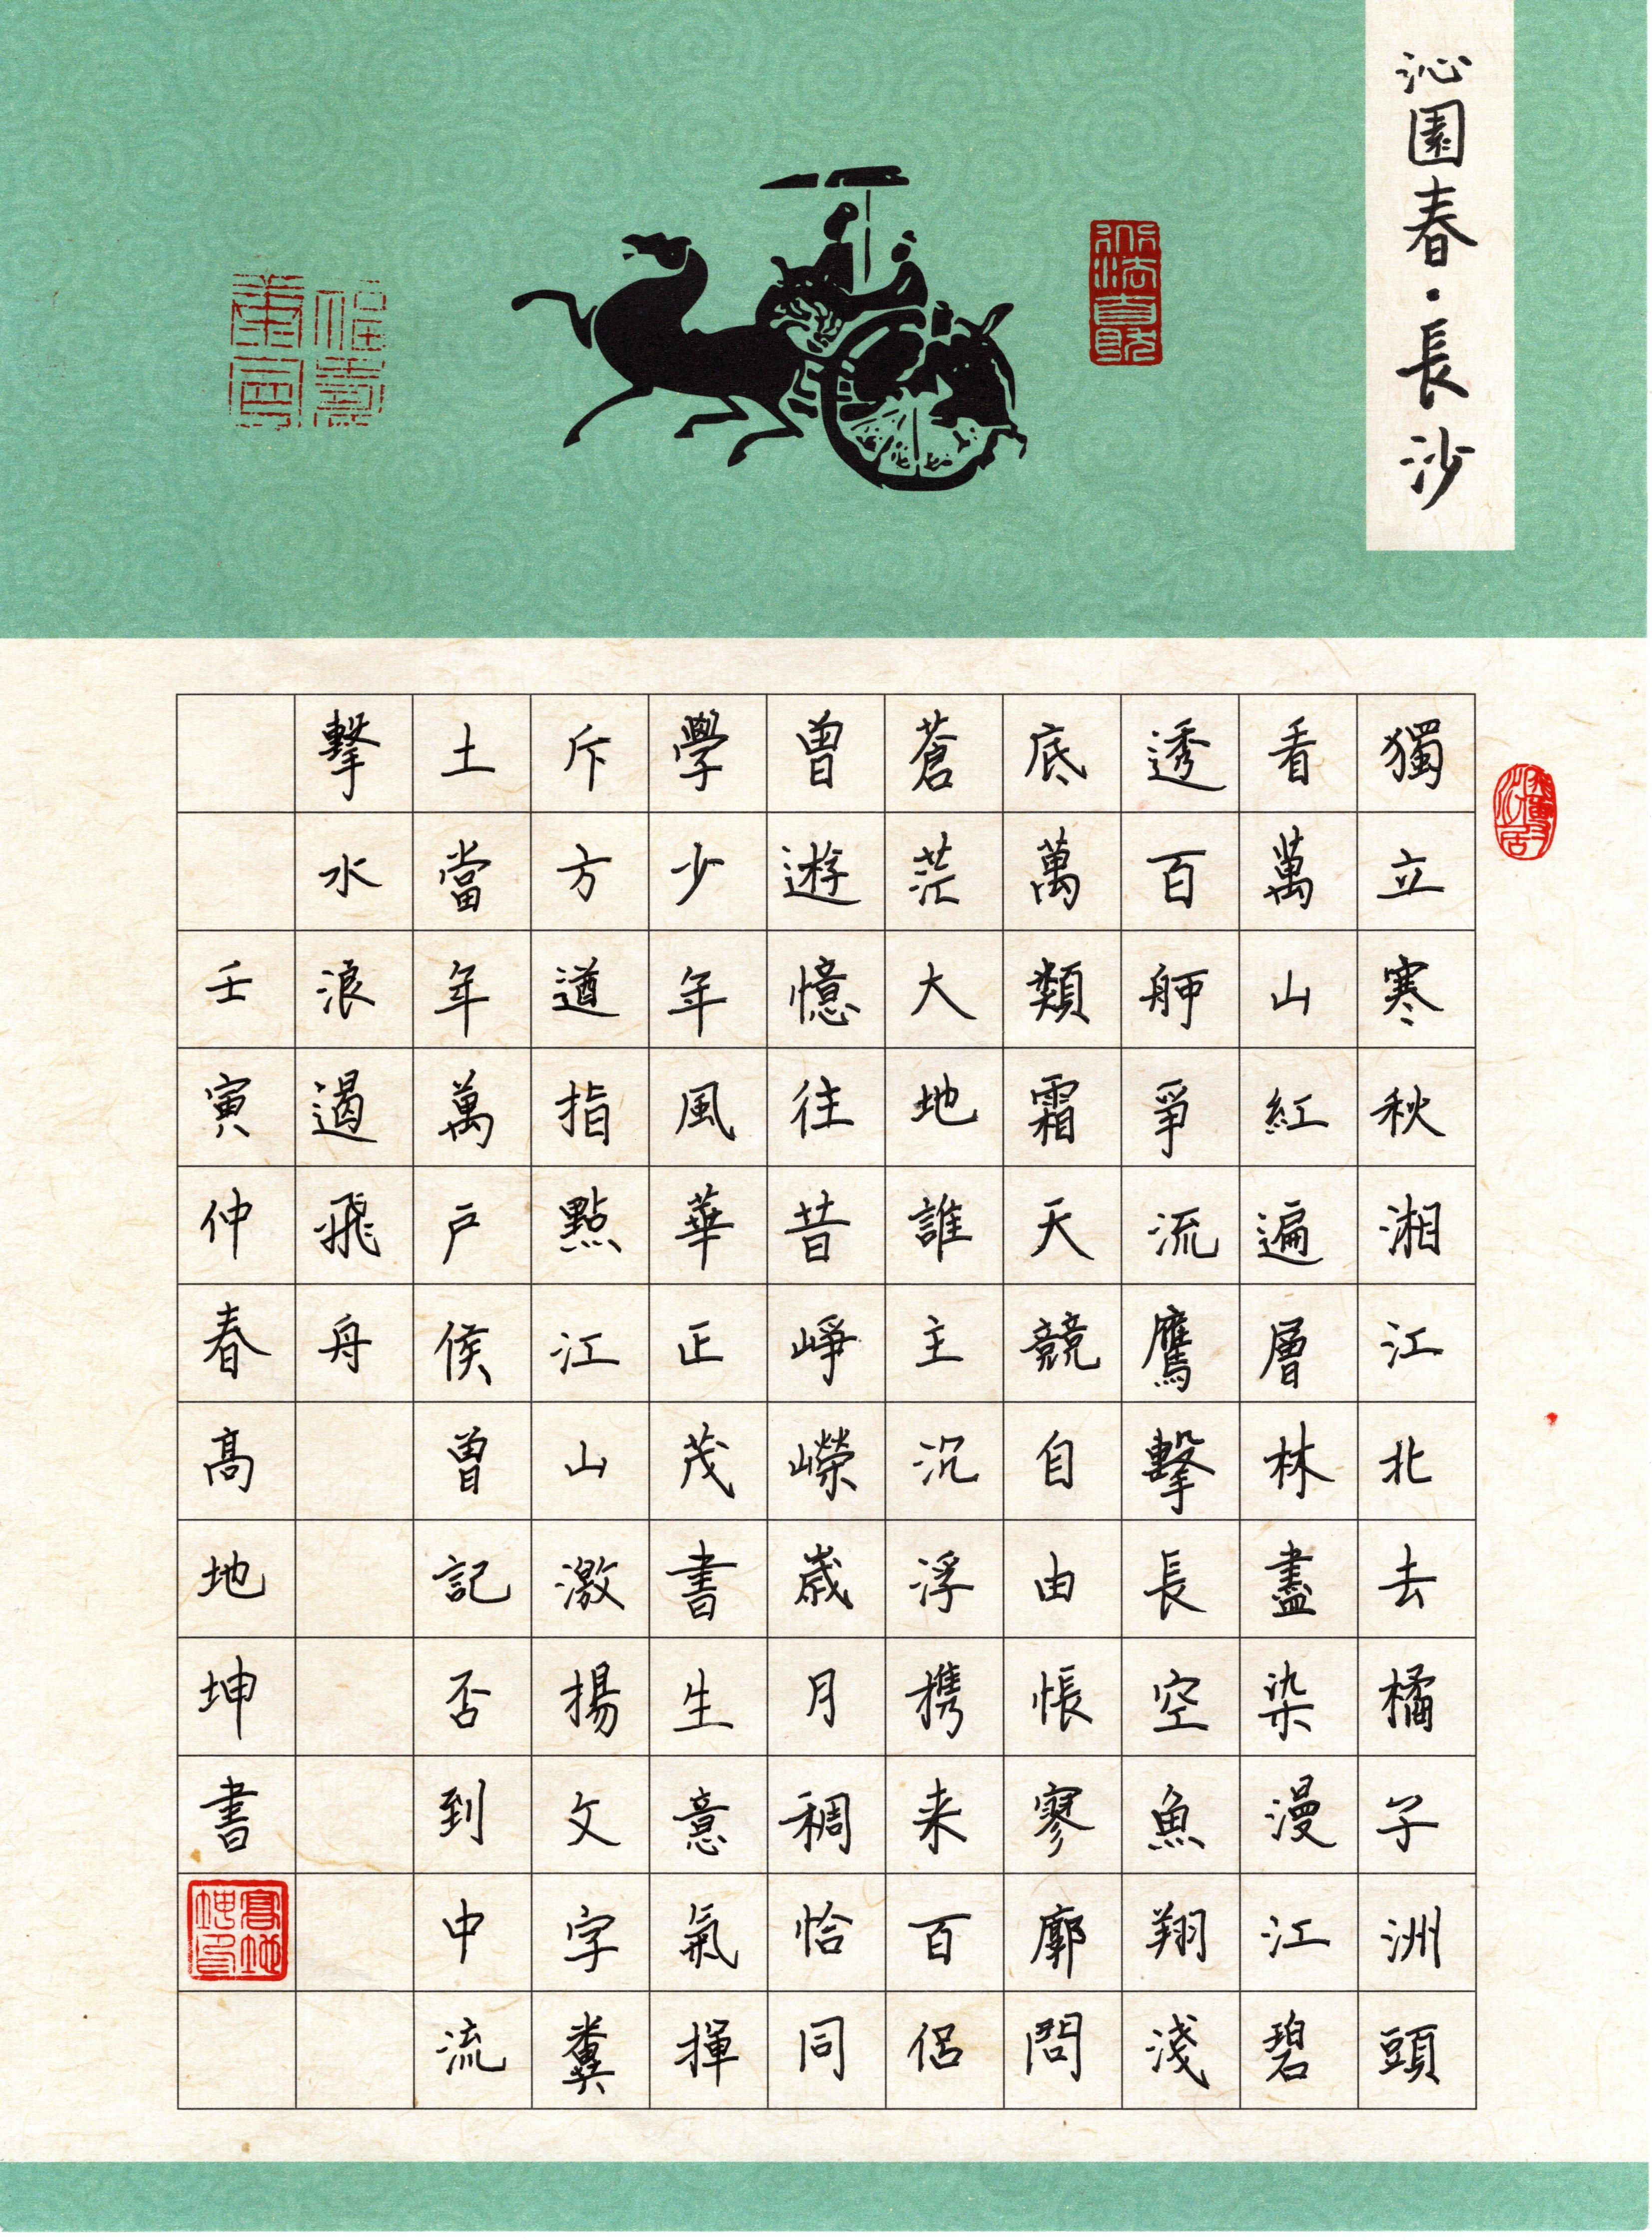 沁園春·長沙
獨立寒秋湘江北去橘子洲頭
看萬山紅遍層林盡染漫江碧
透百舸爭流鷹擊長空魚翔淺
底萬類霜天競自由悵寥廓問
蒼茫大地誰主沉浮携来百侶
曾遊憶往昔崢嶸歲月稠恰同
學少年風華正茂書生意氣揮
斥方遒指點江山激揚文字糞
土當年萬戶侯曾記否到中流
擊水浪遏飛舟
壬寅仲春高地坤書
高地坤印